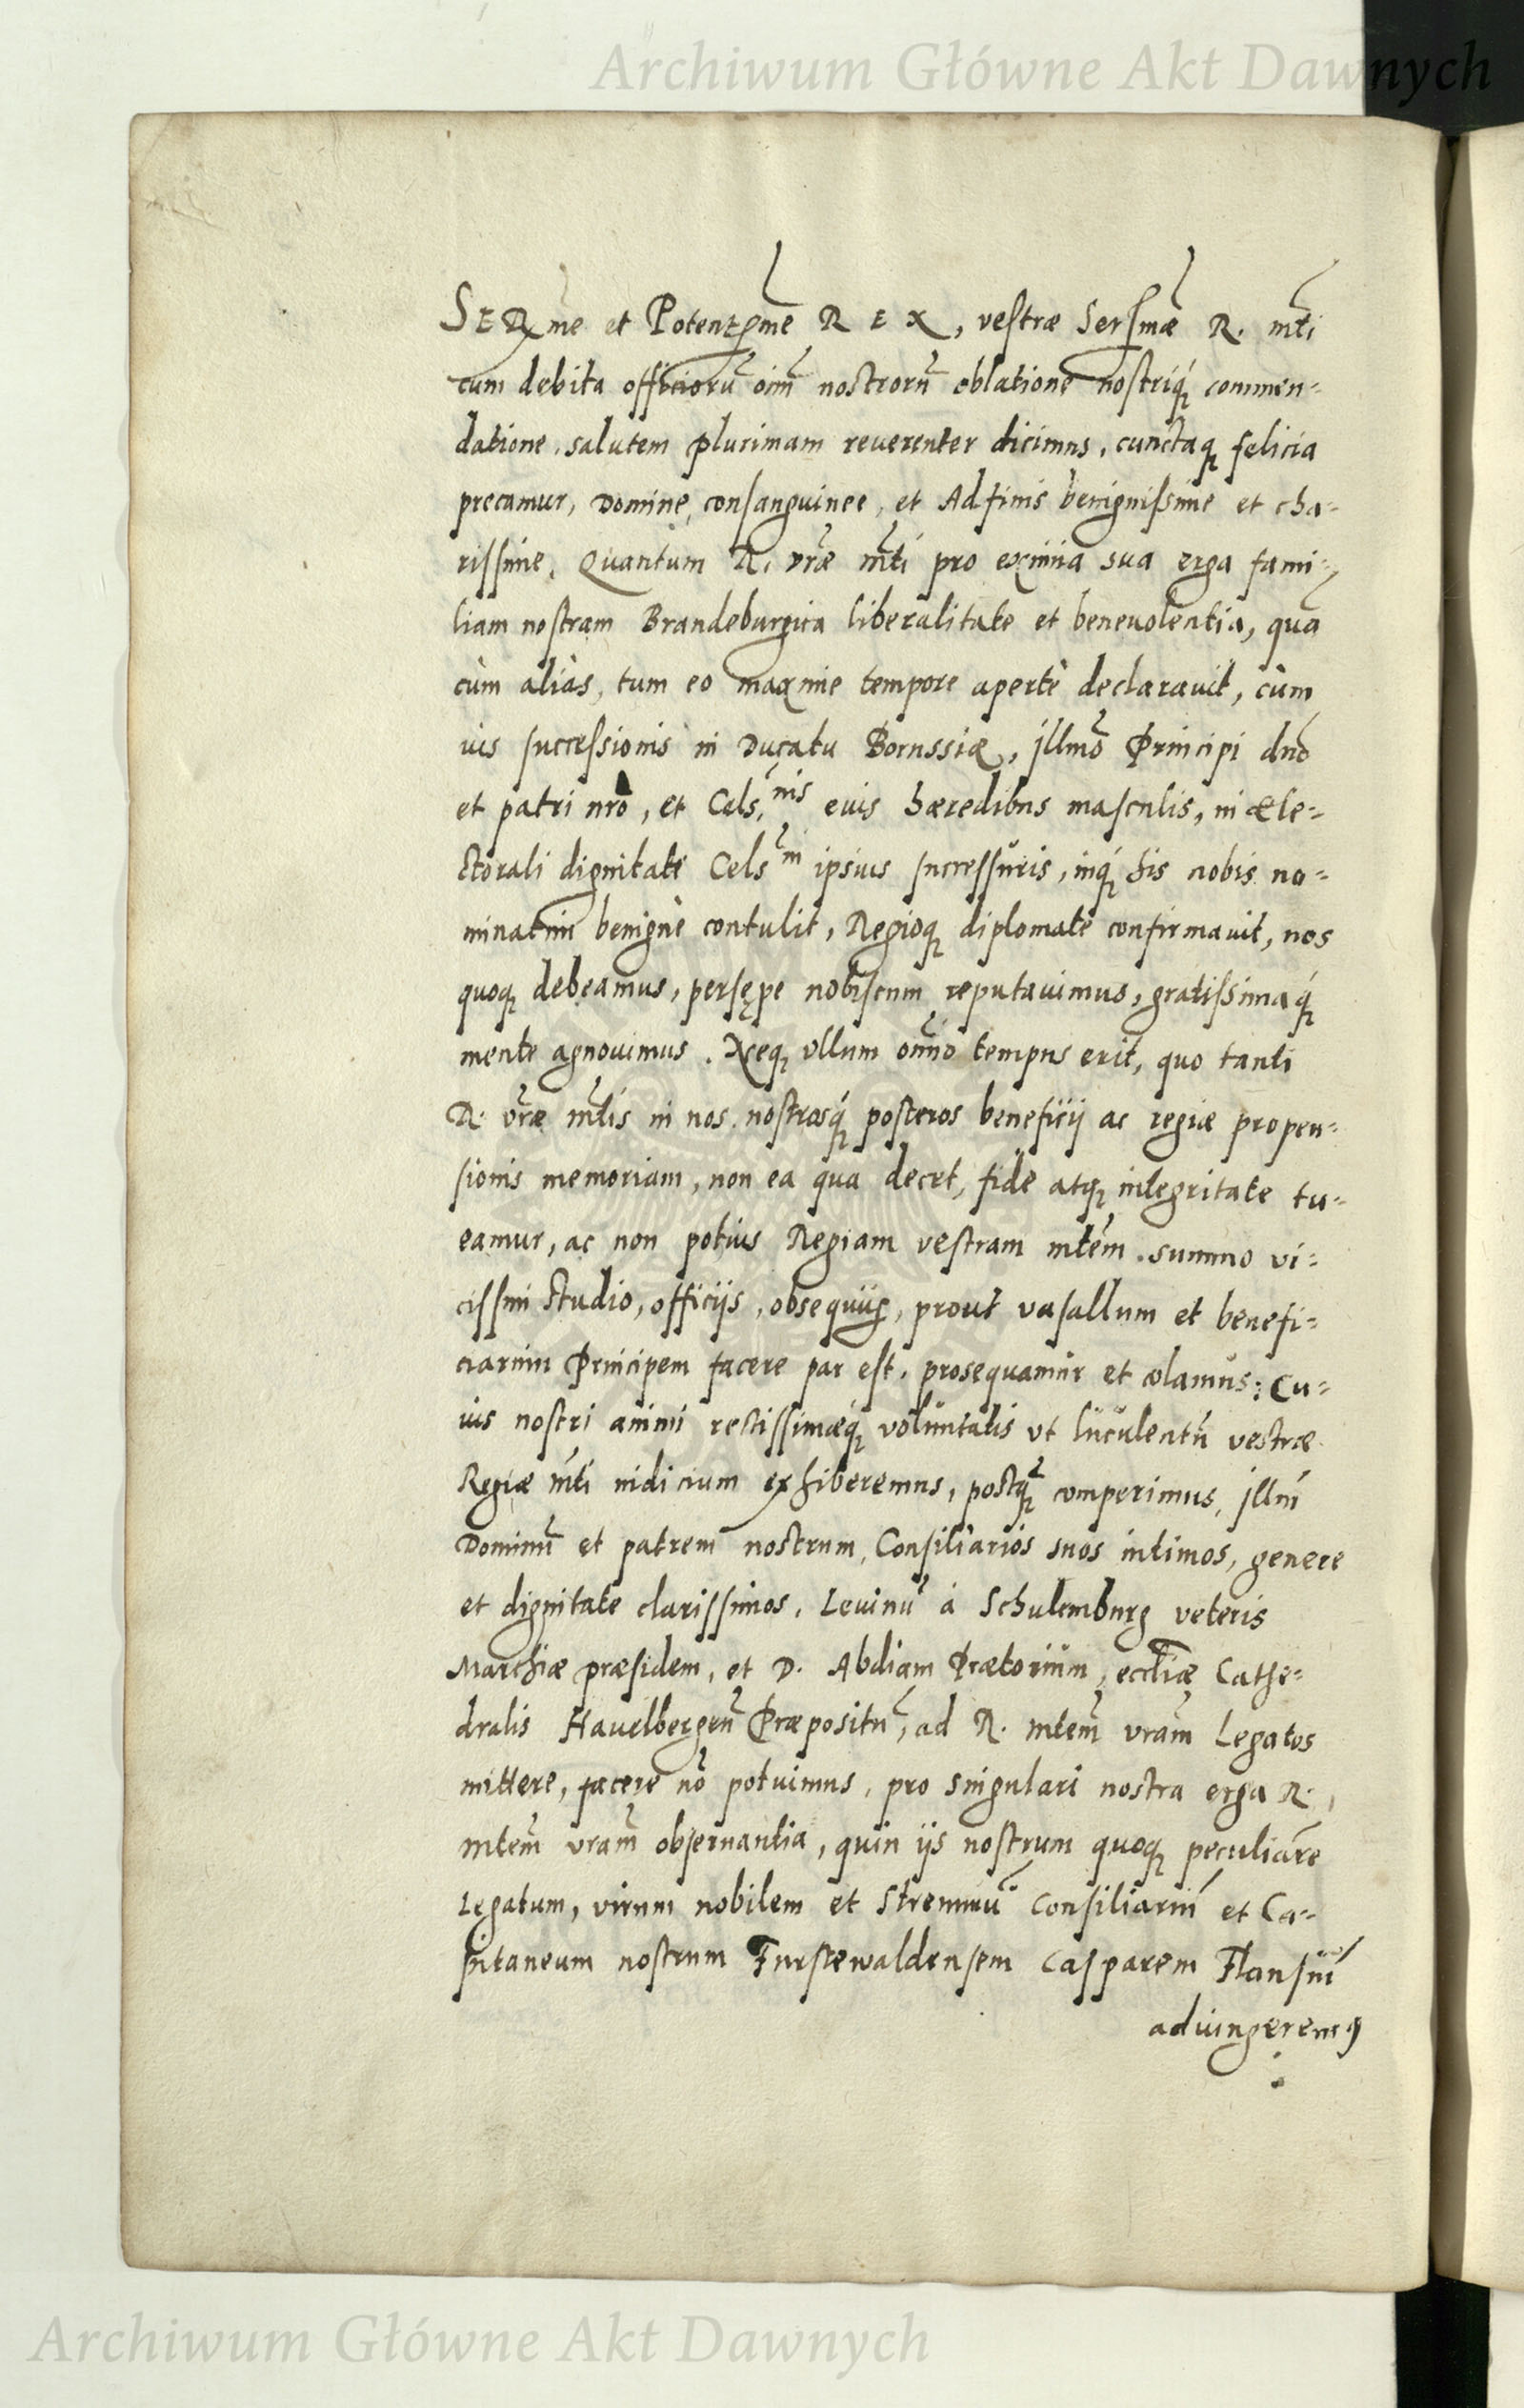 Archiwum Główne Akt Dawnych
SERme et Potentsme REX, vestræ Sersmæ R. mti
cum debita officiorũ oim̃ nostrorũ oblatione nostriq́ꝫ commen=
datione, salutem plurimam reuerenter dicimus, cunctaqꝫ felicia
precamur, Domine, consanguinee, et Adfinis benignissime et cha=
rissime. Quantum R. vræ mti pro eximia sua erga fami=
liam nostram Brandeburgica liberalitate et beneuolentia, qua
cùm aliàs, tum eo maxime tempore apertè declarauit, cùm
ius successionis in Ducatu Borussiæ, jllmo Principi dno
et patri nro, et Cels.nis euis hæredibus masculis, in Ele=
ctorali dignitate Cels.ni ipsius successuris, inq́ꝫ his nobis no=
minatim benignè contulit, Regioqꝫ diplomate confirmauit, nos
quoqꝫ debeamus, persępe nobiscum reputauimus, gratissimaq́ꝫ
mente agnouimus. Neqꝫ vllum omño tempus erit, quo tanti
R. vræ mtis in nos nostrosq́ꝫ posteros beneficij ac regiæ propen=
sionis memoriam, non ea qua decet, fide atqꝫ integritate tu=
eamur, ac non potius Regiam vestram mtem summo vi=
cissim studio, officijs, obsequijs, prout vasallum et benefi=
ciarium Principem facere par est, prosequamur et colamus: Cu=
ius nostri animi rectissimæq́ꝫ voluntatis vt luculentũ vestræ
Regiæ mti indicium exhiberemus, postqꝫ̃ comperimus, jllm̃
Dominũ et patrem nostrum, Consiliarios suos intimos, genere
et dignitate clarissimos, Leuinũ à Schulemburg veteris
Marchiæ præsidem, et D. Abdiam Prætorium, eccliæ Cathe=
dralis Hauelbergeñ Præpositũ, ad R. mtem vram Legatos
mittere, facere nõ potuimus, pro singulari nostra erga R.
mtem vram obseruantia, quin ijs nostrum quoqꝫ peculiare
Legatum, virum nobilem et strennuũ Consiliariũ et Ca=
pitaneum nostrum Furstewaldensem Casparem Flansũ
adiungeremꝰ
Archiwum Główne Akt Dawnych